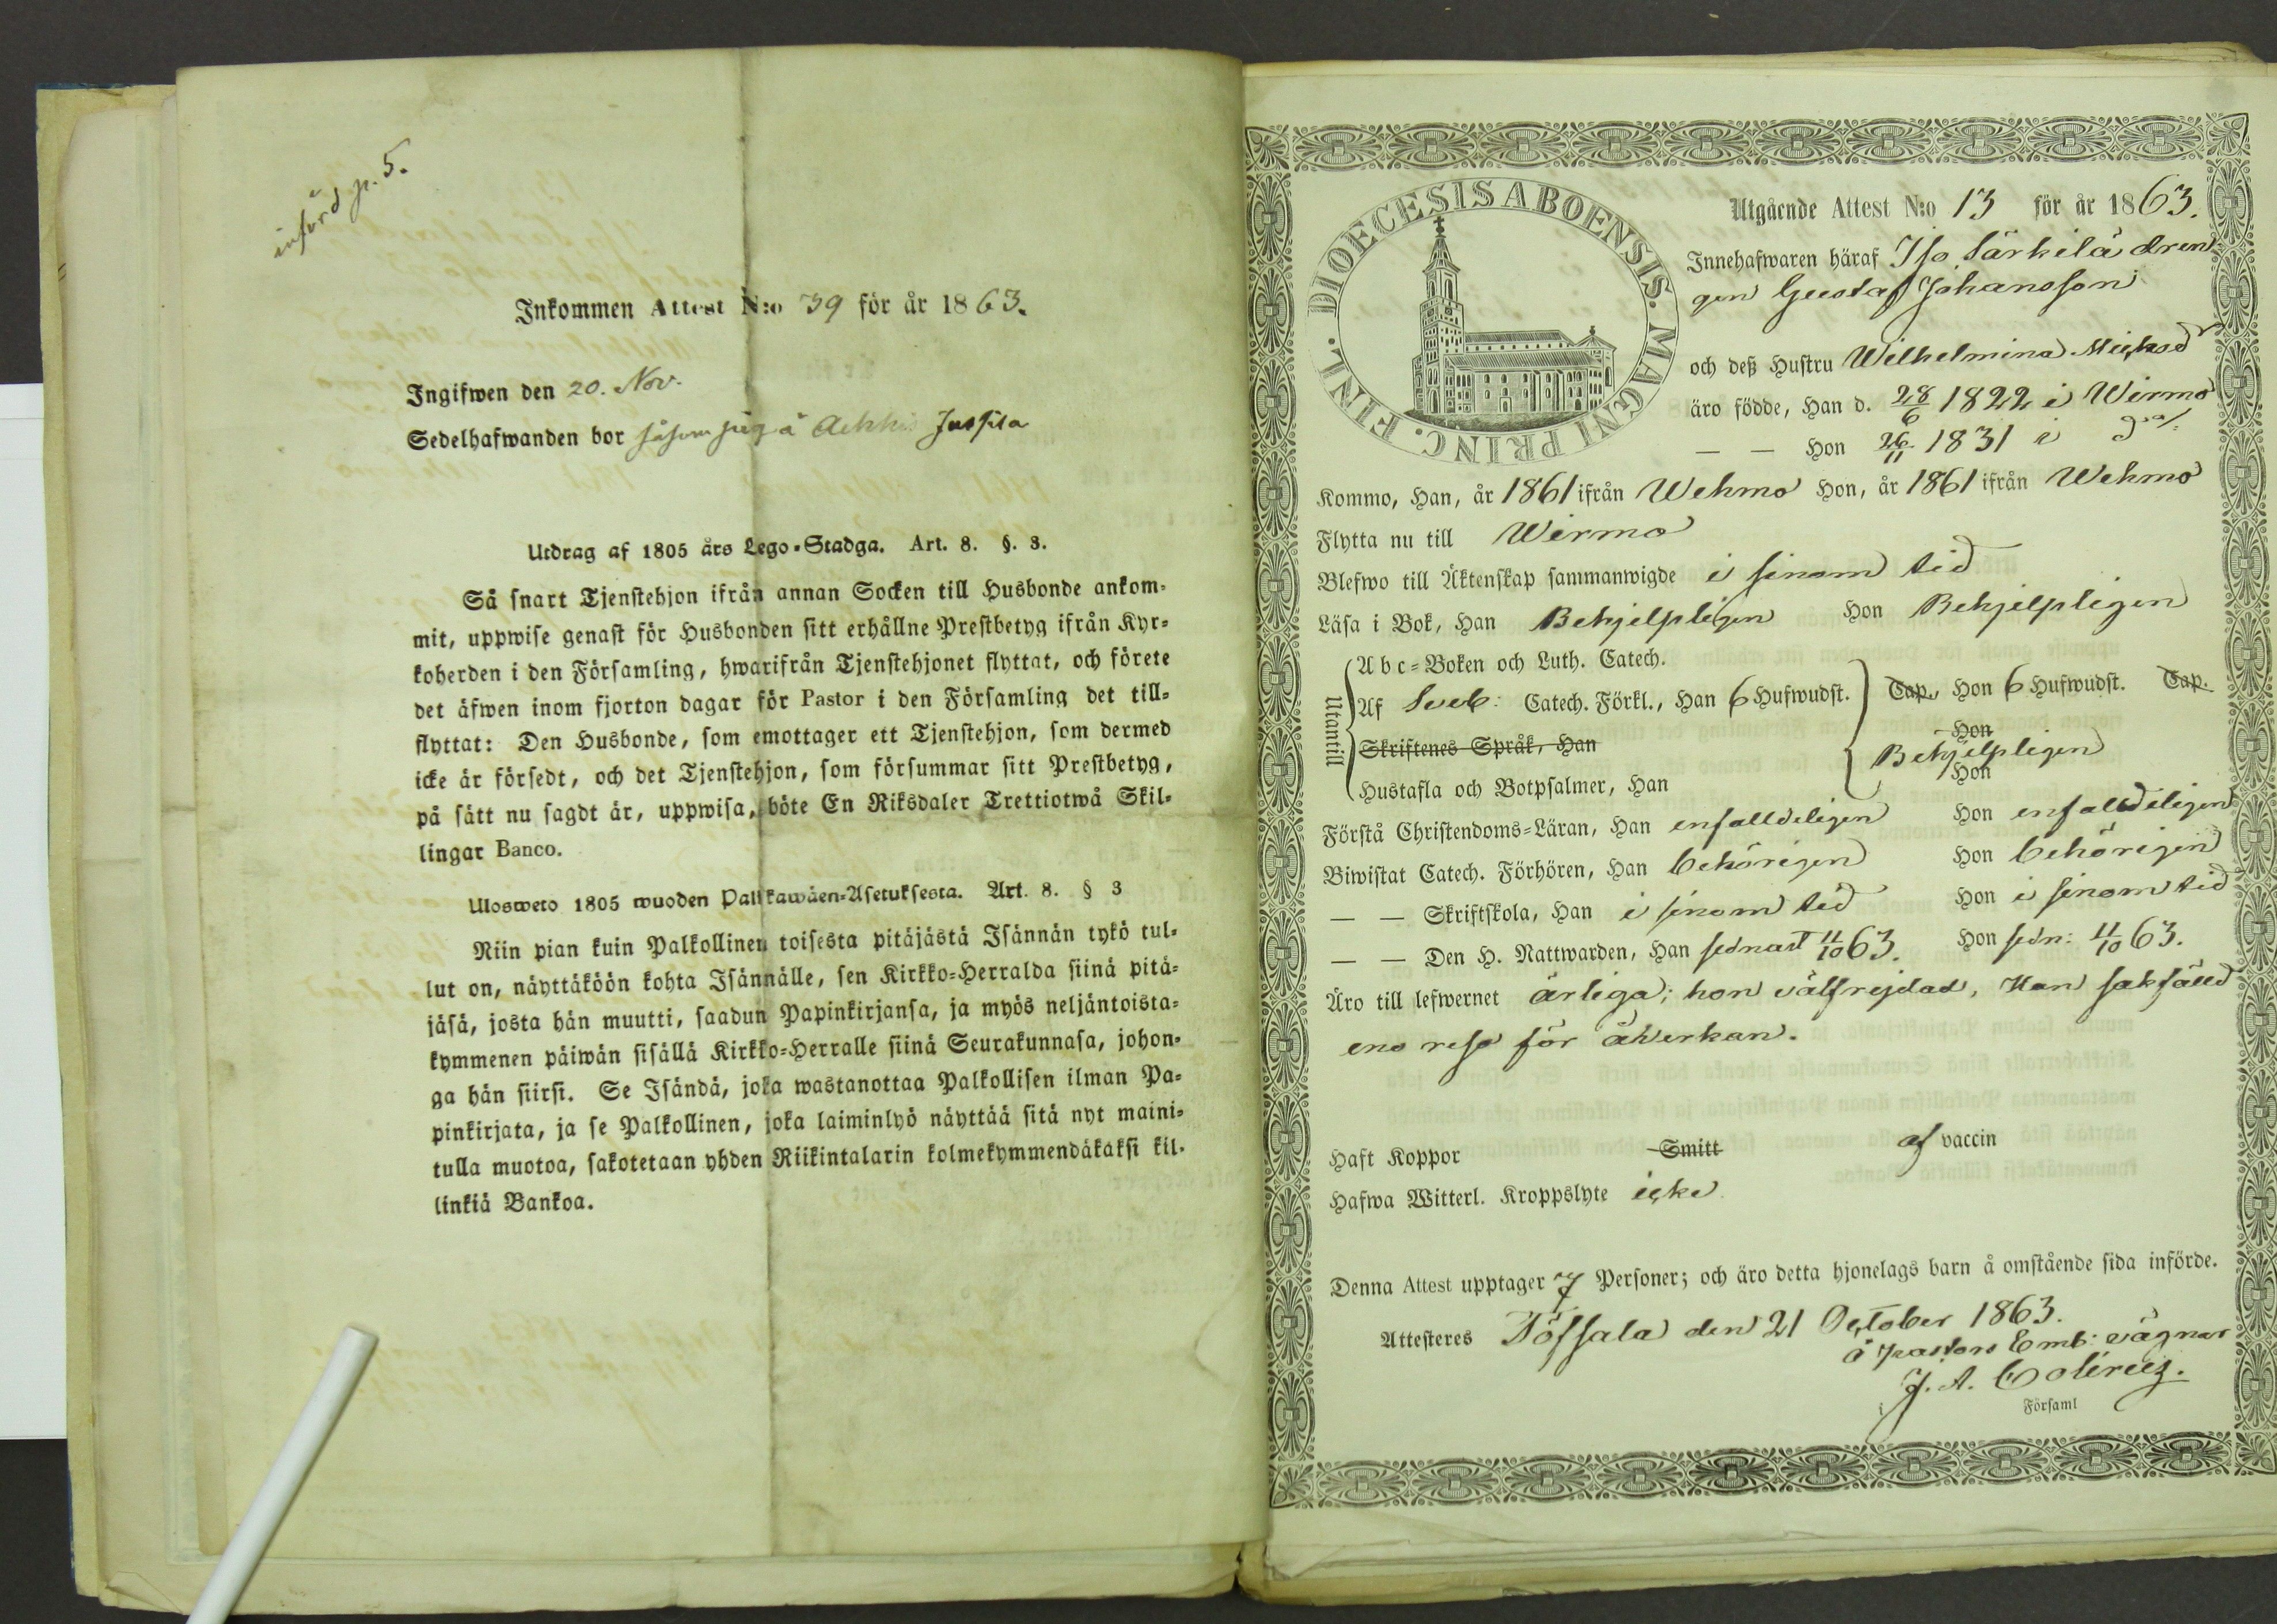 införd p. 5.
Inkommen Attest N:o 39 för år 1863.
Ingifwen den 20. Nov.
Sedelhafwanden bor såsom pig å Jussila
Utdrag af 1805 års Lego-Stadga. Art. 8. §. 3.
Så snart Tjenstehjon ifrån annan Socken till Husbonde ankom-
mit, uppwise genast för Husbonden sitt erhållne Prestbetyg ifrån Kyr-
koherden i den Församling, hwarifrån Tjenstehjonet flyttat, och förete
det äfwen inom fjorton dagar för Pastor i den Församling det till-
flyttat: Den Husbonde, som emottager ett Tjenstehjon, som dermed
icke är försedt, och det Tjenstehjon, som försummar sitt Prestbetyg,
på sätt nu sagdt är, uppwisa, böte En Riksdaler Trettiotwå Skil-
lingar Banco.
Ulosweto 1805 wuoden Palkkawäen-Asetuksesta. Art. 8. § 3
Niin pian kuin Palkollinen toisesta pitäjästä Isännän tykö tul-
lut on, näyttäköön kohta Isännälle, sen Kirkko-Herralda siinä pitä-
jäsä, josta hän muutti, saadun Papinkirjansa, ja myös neljäntoista-
kymmenen päiwän sisällä Kirkko-Herralle siinä Seurakunnasa, johon-
ga hän siirsi. Se Isändä, joka wastanottaa Palkollisen ilman Pa-
pinkirjata, ja se Palkollinen, joka laiminlyö näyttää sitä nyt maini-
tulla muotoa, sakotetaan yhden Riikintalarin kolmekymmendäkaksi kil-
linkiä Bankoa.
DIOECESIS ABOENSIS. MAGNI PRINC. FINL.
Utgående Attest N:o 13 för år 1863.
Innehafwaren häraf Iso Särkilä dren-
gen Gustaf Johansson
och deß Hustru Wilhelmina Michelsd
äro födde, Han d. 28/6 1822 i Wirmo
— — Hon 26/11 1831 i d:o
Kommo, Han, år 1861 ifrån Wehmo Hon, år 1861 ifrån Wehmo
Flytta nu till Wirmo
Blefwo till Äktenskap sammanwigde i sinom tid
Läsa i Bok, Han Behjelpligen Hon Behjelpligen
Utantill
Abc-Boken och Luth. Catech.
Af Sveb: Catech. Förkl., Han 6 Hufwudst. Cap., Hon 6 Hufwudst. Cap.
Skriftenes Språk, Han Hon
Behjelpligen
Hustafla och Botpsalmer, Han Hon
Förstå Christendoms-Läran, Han enfalldeligen Hon enfalldeligen
Biwistat Catech. Förhören, Han behörigen Hon behörigen
— — Skriftskola, Han i sinom tid Hon i sinom tid
— — Den H. Nattwarden, Han sednast 11/10 63. Hon sedn: 11/10 63.
Äro till lefwernet ärliga; hon välfrejdad, Han sakfälld
ena resa för åverkan.
Haft Koppor Smitt af vaccin
Hafwa Witterl. Kroppslyte icke
Denna Attest upptager 7 Personer; och äro detta hjonelags barn å omstående sida införde.
Attesteres Töfsala den 21 October 1863.
å Pastors Emb: vägnar
J. A.
i Församl